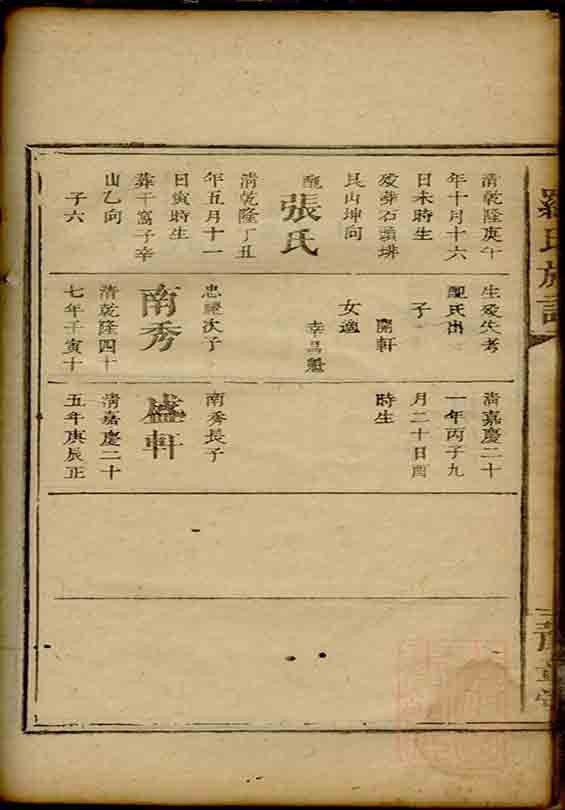 清乾隆庚午
年十月十六
日未時生
歿葬石頭塝
艮山坤向
配
張氏
清乾隆丁丑
年五月十一
日寅時生
葬干富子辛
山乙向
子六
生歿失考
配氏出
子一
開軒
女適
幸昌魁
忠耀次子
南秀
清乾隆四十
七年壬寅十
清嘉慶二十
一年丙子九
月二十日酉
時生
南秀長子
盛軒
清嘉慶二十
五年庚辰正
羅氏族譜